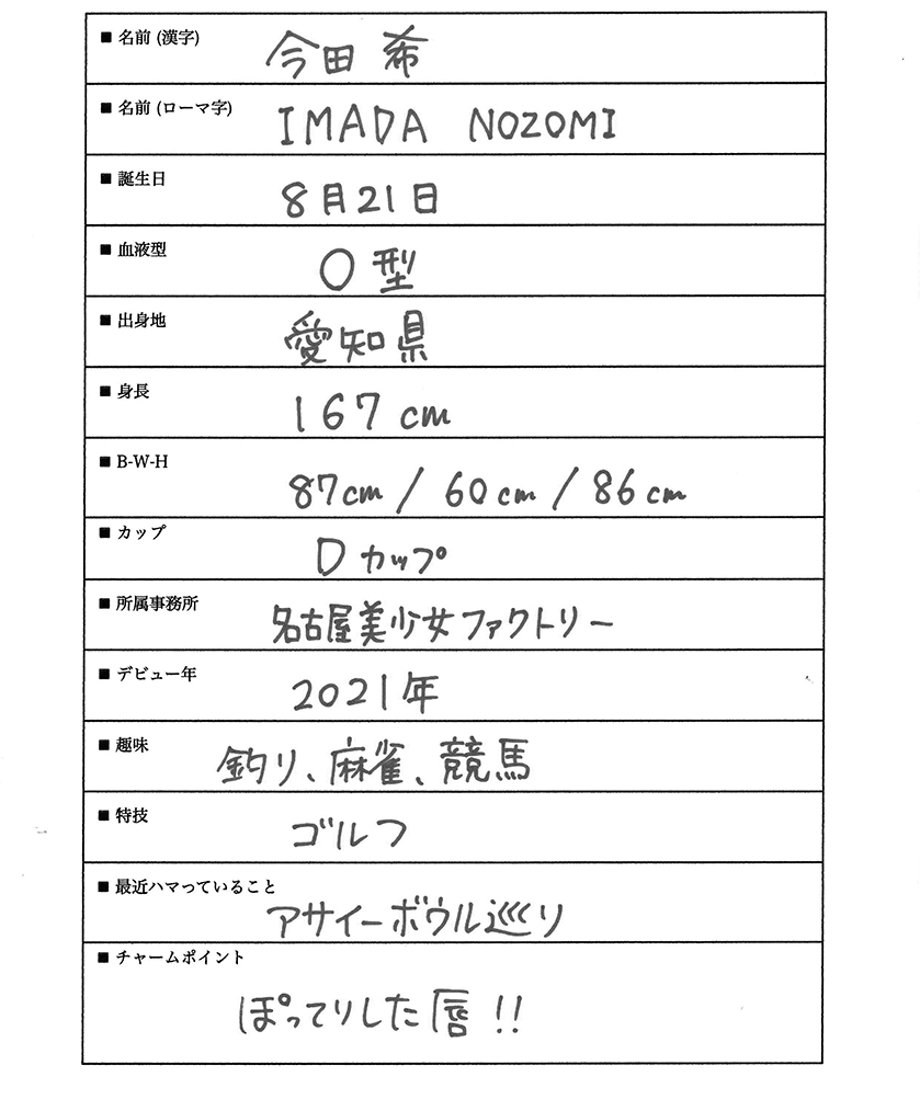 ■ 名前 (漢字)
今田 希
■ 名前 (ローマ字)
IMADA NOZOMI
■ 誕生日
8月21日
■ 血液型
O型
■ 出身地
愛知県
■ 身長
167cm
■ B-W-H
87cm / 60cm / 86cm
■ カップ
Dカップ
■ 所属事務所
名古屋美少女ファクトリー
■ デビュー年
2021年
■ 趣味
釣り、麻雀、競馬
■ 特技
ゴルフ
■ 最近ハマっていること
アサイーボウル巡り
■ チャームポイント
ぽってりした唇!!